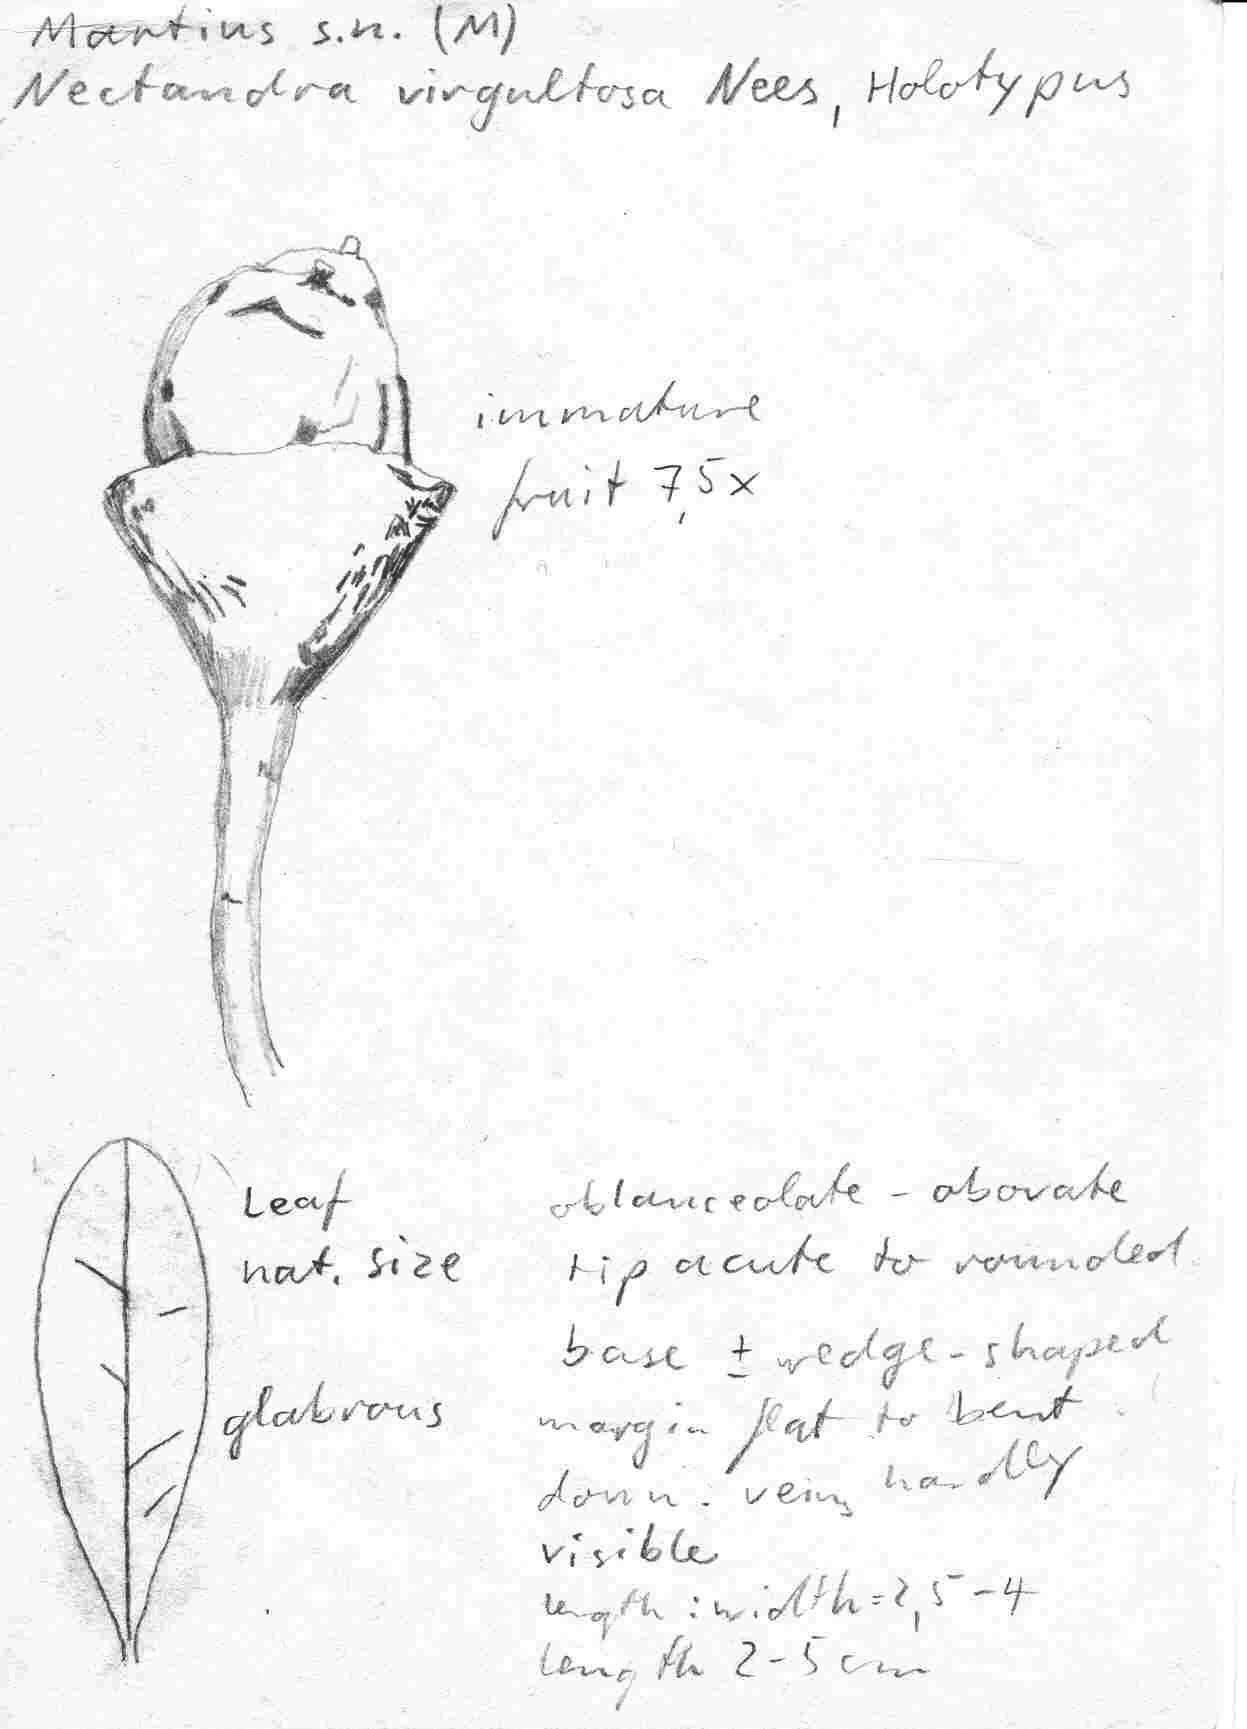 Martius s.n. (M)
Nectandra virgultosa Nees, Holotypus
immature
fruit 7,5x
Leaf
nat. size
glabrous
oblanceolate - obovate
tip acute to rounded
base ± wedge-shaped
margin flat to bent
down. veins hardly
visible
length : width = 2,5 - 4
length 2-5 cm